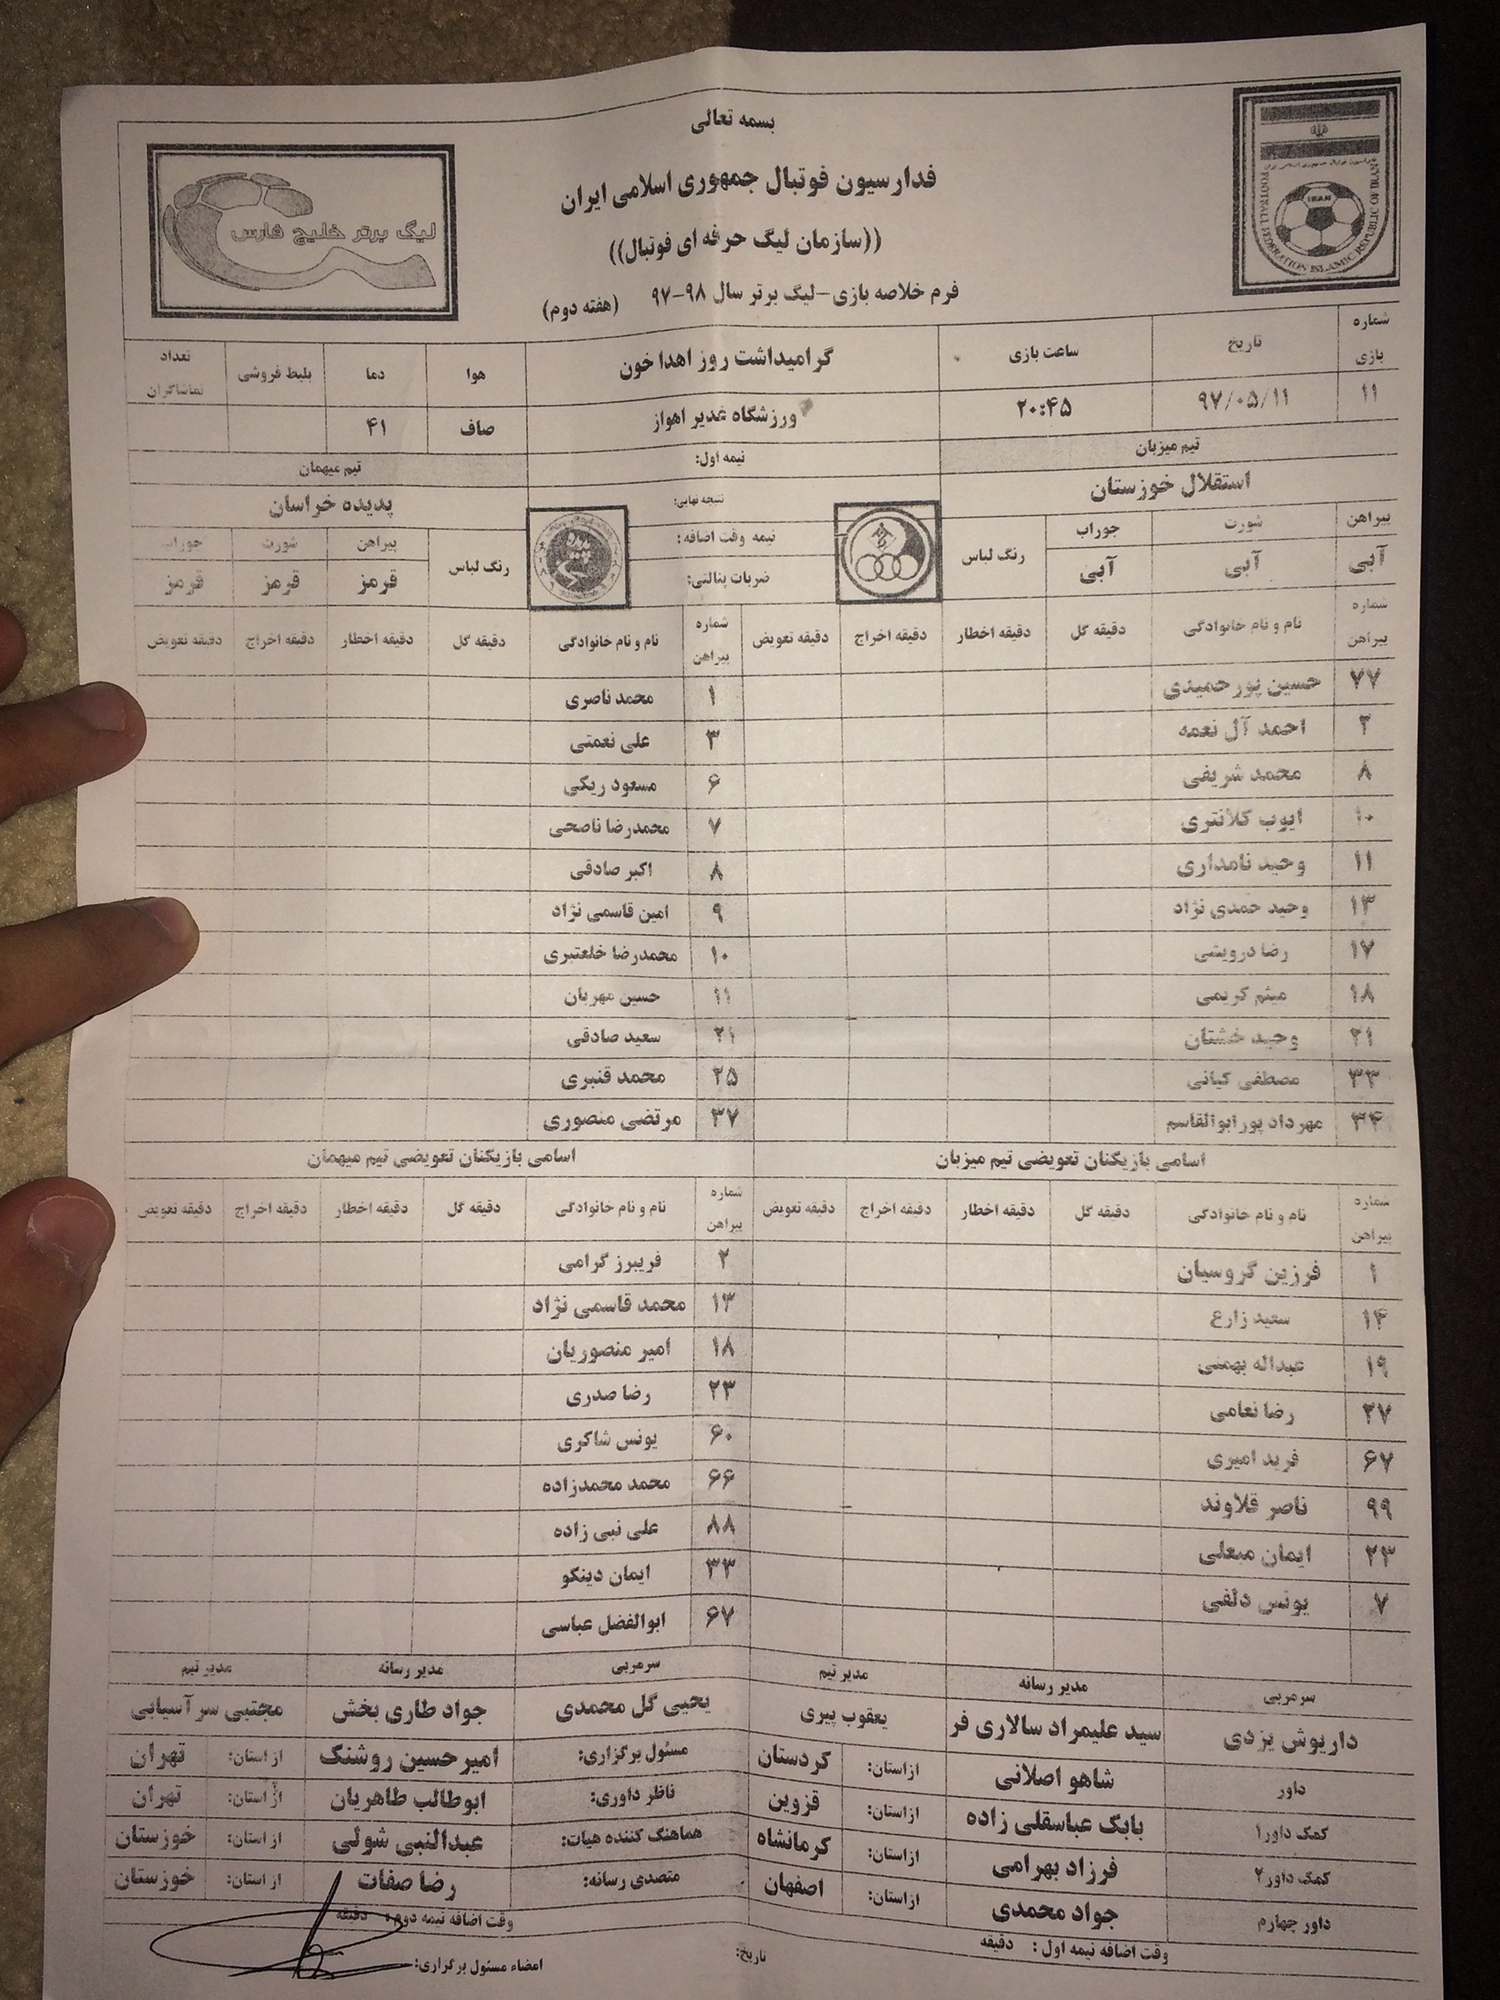 بسمه تعالی
فدارسیون فوتبال جمهوری اسلامی ایران
((سازمان لیگ حرفه ای فوتبال))
فرم خلاصه بازی-لیگ برتر سال ۹۸-۹۷ (هفته دوم)
لیگ برتر خلیج فارس
IRAN
FOOTBALL FEDERATION ISLAMIC REPUBLIC OF IRAN
شماره بازی تاریخ ساعت بازی گرامیداشت روز اهدا خون هوا دما بلیط فروشی تعداد تماشاگران
۱۱ ۹۷/۰۵/۱۱ ۲۰:۴۵ ورزشگاه غدیر اهواز صاف ۴۱
تیم میزبان نیمه اول: تیم میهمان
استقلال خوزستان نتیجه نهایی: پدیده خراسان
پیراهن شورت جوراب رنگ لباس نیمه وقت اضافه: رنگ لباس پیراهن شورت جوراب
آبی آبی آبی ضربات پنالتی: قرمز قرمز قرمز
شماره پیراهن نام و نام خانوادگی دقیقه گل دقیقه اخطار دقیقه اخراج دقیقه تعویض شماره پیراهن نام و نام خانوادگی دقیقه گل دقیقه اخطار دقیقه اخراج دقیقه تعویض
۷۷ حسین پورحمیدی ۱ محمد ناصری
۲ احمد آل نعمه ۳ علی نعمتی
۸ محمد شریفی ۶ مسعود ریگی
۱۰ ایوب کلانتری ۷ محمدرضا ناصحی
۱۱ وحید نامداری ۸ اکبر صادقی
۱۳ وحید حمدی نژاد ۹ امین قاسمی نژاد
۱۷ رضا درویشی ۱۰ محمدرضا خلعتبری
۱۸ میثم کریمی ۱۱ حسین مهربان
۲۱ وحید خشتان ۲۱ سعید صادقی
۳۳ مصطفی کیانی ۲۵ محمد قنبری
۳۴ مهرداد پورابوالقاسم ۳۷ مرتضی منصوری
اسامی بازیکنان تعویضی تیم میزبان اسامی بازیکنان تعویضی تیم میهمان
شماره پیراهن نام و نام خانوادگی دقیقه گل دقیقه اخطار دقیقه اخراج دقیقه تعویض شماره پیراهن نام و نام خانوادگی دقیقه گل دقیقه اخطار دقیقه اخراج دقیقه تعویض
۱ فرزین گروسیان ۲ فریبرز گرامی
۱۴ سعید زارع ۱۳ محمد قاسمی نژاد
۱۹ عبداله بهمنی ۱۸ امیر منصوریان
۲۷ رضا نعامی ۲۳ رضا صدری
۶۷ فرید امیری ۶۰ یونس شاکری
۹۹ ناصر قلاوند ۶۶ محمد محمدزاده
۲۳ ایمان مبعلی ۸۸ علی نبی زاده
۷ یونس دلفی ۳۳ ایمان دینکو
۶۷ ابوالفضل عباسی
سرمربی مدیر رسانه مدیر تیم سرمربی مدیر رسانه مدیر تیم
داریوش یزدی سید علیمراد سالاری فر یعقوب پیری یحیی گل محمدی جواد طاری بخش مجتبی سرآسیابی
داور شاهو اصلانی از استان: کردستان مسئول برگزاری: امیرحسین روشنک از استان: تهران
کمک داور۱ بابک عباسقلی زاده از استان: قزوین ناظر داوری: ابوطالب طاهریان از استان: تهران
کمک داور۲ فرزاد بهرامی از استان: کرمانشاه هماهنگ کننده هیات: عبدالنبی شولی از استان: خوزستان
داور چهارم جواد محمدی از استان: اصفهان متصدی رسانه: رضا صفات از استان: خوزستان
وقت اضافه نیمه اول : دقیقه وقت اضافه نیمه دوم : دقیقه
تاریخ: امضاء مسئول برگزاری: